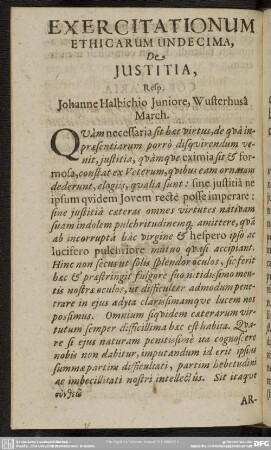 EXERCITATIONUM
ETHICARUM UNDECIMA,
De
JUSTITIA,
Resp.
Johanne Halbichio Juniore, Wusterhusâ
March.
QVàm necessaria sit hæc virtus, de quâ in
præsentiarum porrò disqvirendum ve-
nit, justitia, quámque eximia sit & for-
mosa, constat ex Veterum, quibus eam ornatam
dederunt, elogiis, qualia sunt: sine justitiâ ne
ipsum qvidem Jovem rectè posse imperare:
sine justitiâ ceteras omnes virtutes nativam
suam indolem pulchritudinemq; amittere, quâ
ab incorruptâ hac virgine & hespero ipso ac
lucifero pulchriore mutuo quasi accipiant.
Hinc non secus ut solis splendor oculos, sic ferit
hæc & præstringit fulgore suo nitidissimo men-
tis nostræ oculos, ut difficulter admodum pene-
trare in ejus adyta clarissimamque lucem nos
possimus. Omnium siqvidem ceterarum vir-
tutum semper difficillima hæc est habita. Qua-
re si ejus naturam penitissimè ita cognoscere
nobis non dabitur, imputandum id erit ipsius
summæ partim difficultati, partim hebetudini
ac imbecillitati nostri intellectûs. Sit itaque
AR-